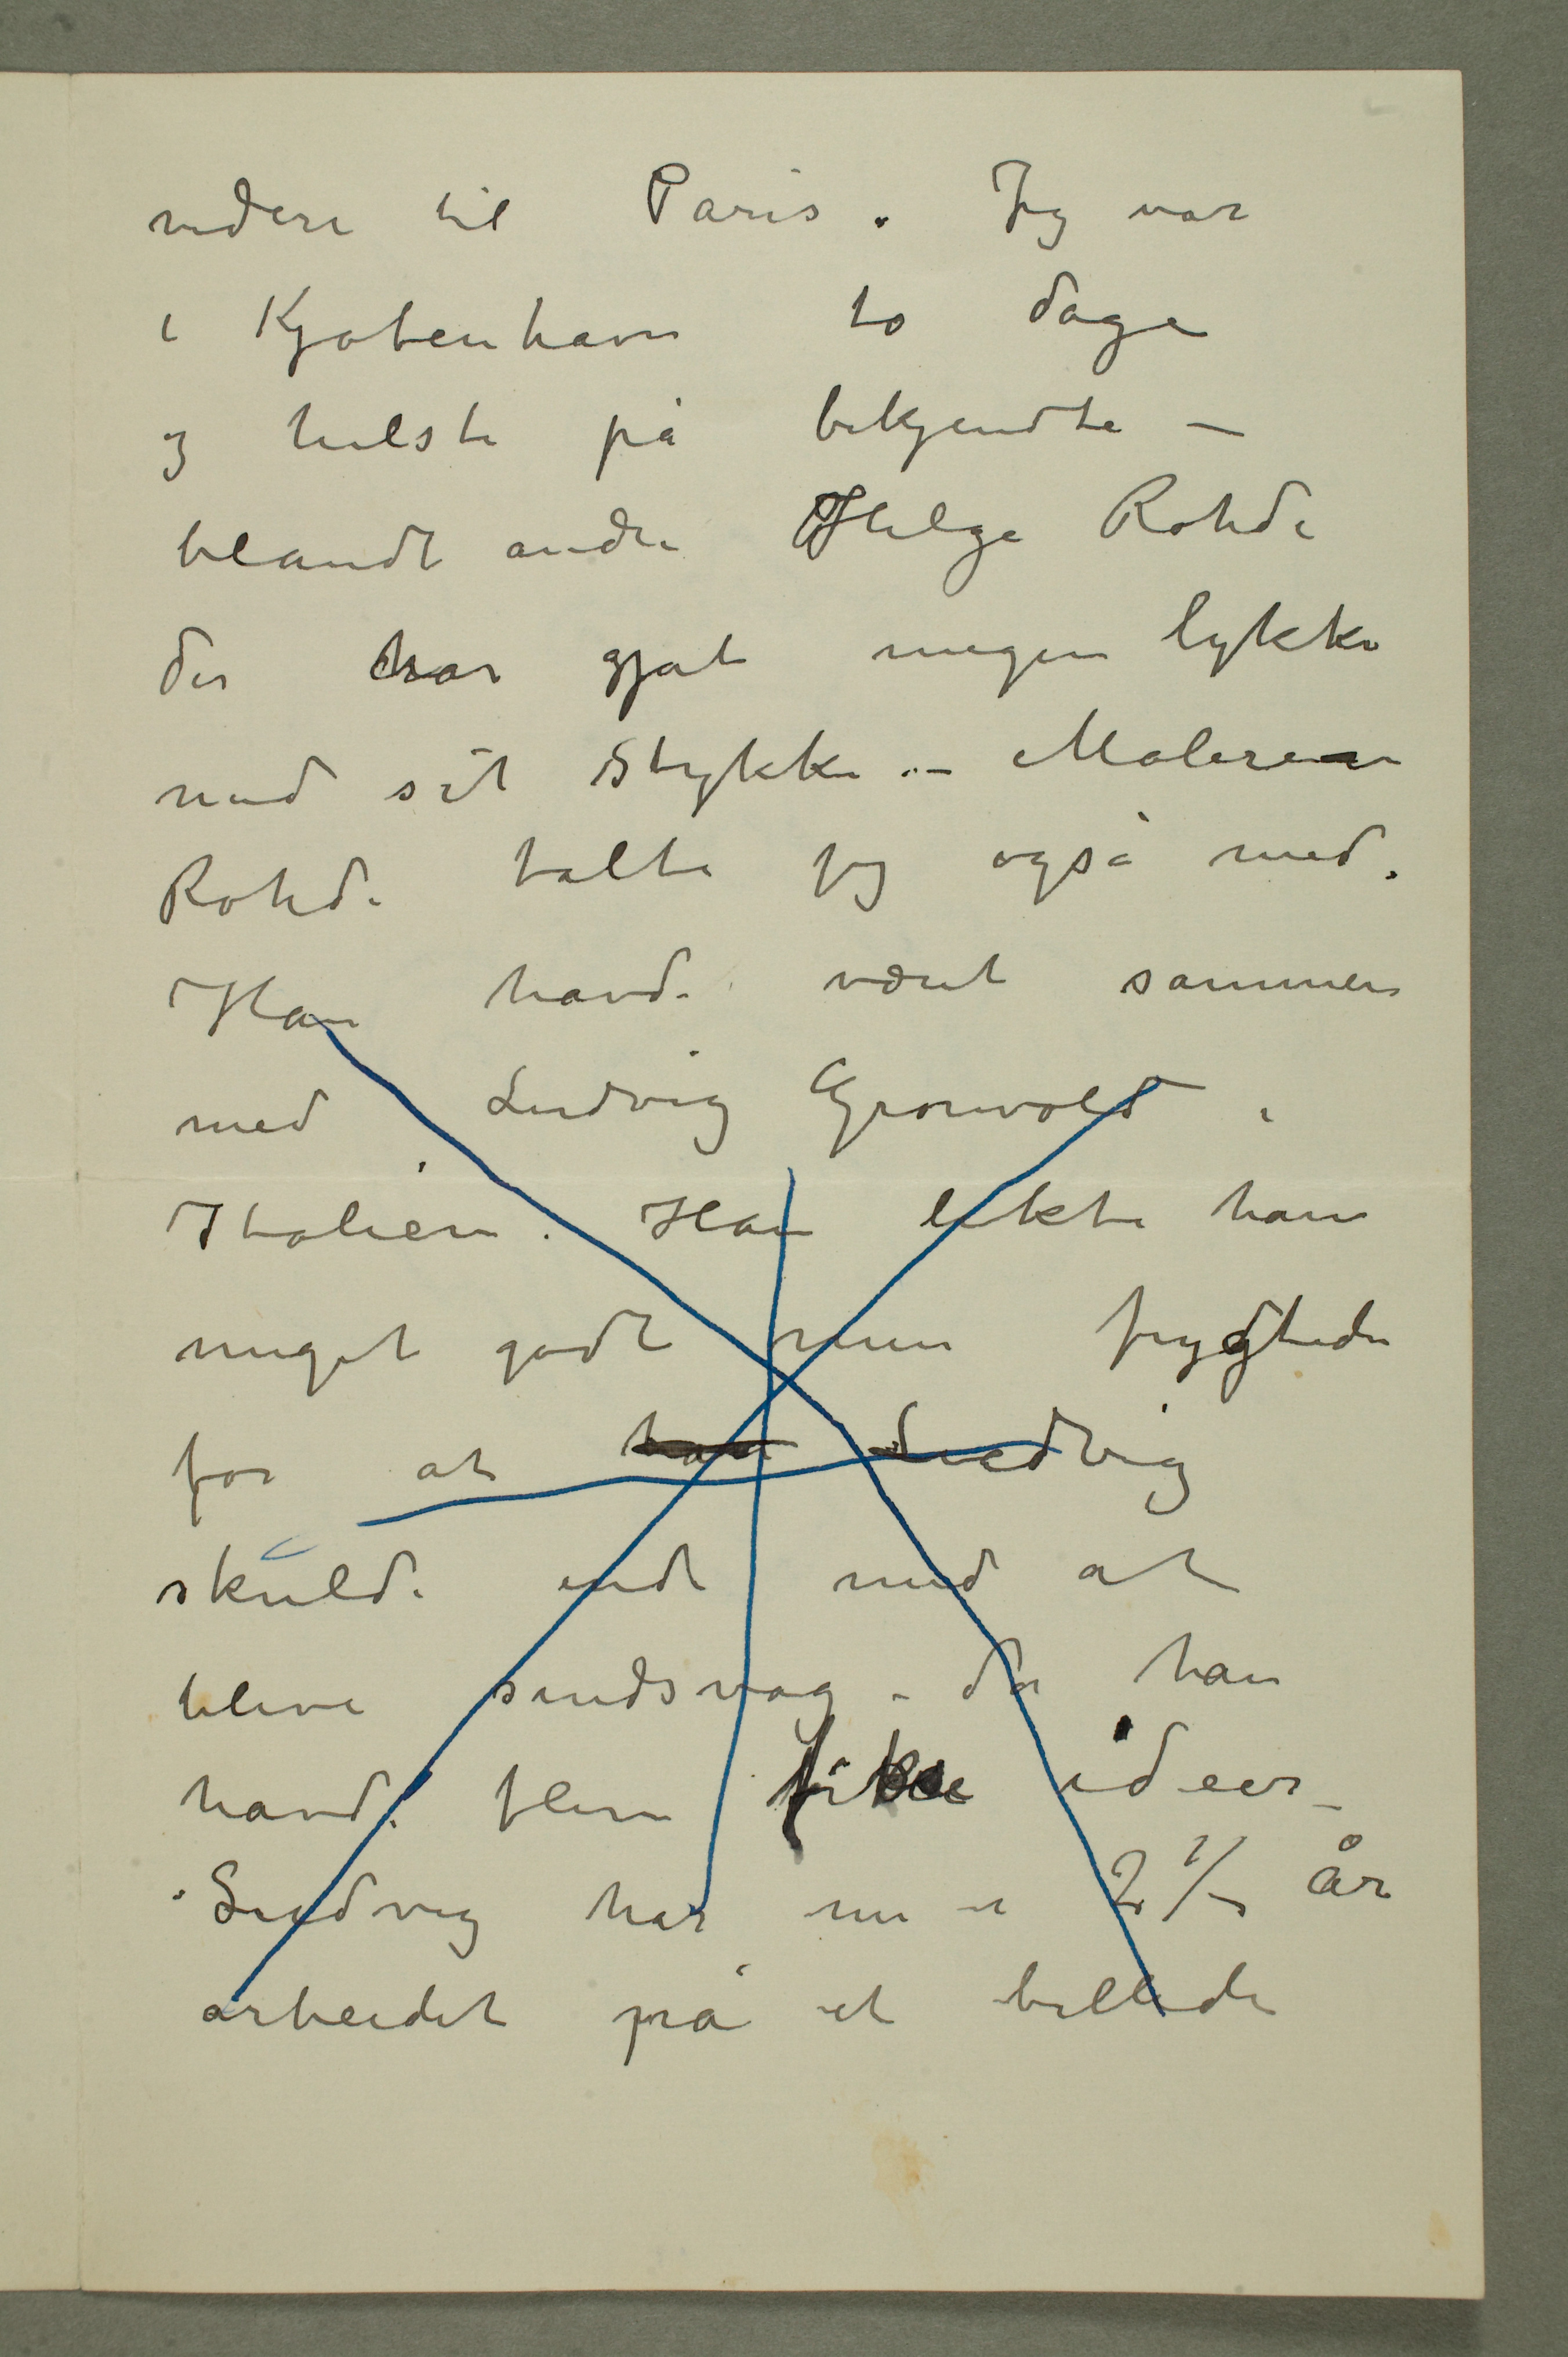 videre til Paris. Jeg var
i Kjøbenhavn to dage
og hilste på bekjendte –
blandt andre Helge Rohde
der har gjort megen lykke
med sit Stykke. – Maleren
Rohde talte jeg også med.
Han havde været sammen
med Ludvig Grønvold i
Italien. Han likte ham
meget godt men frygtede
for at han Ludvig
skulde endt med at
blive sindsvag – da han
havde flere fikse ideer –
Ludvig har nu i 2 1/2 år
arbeidet på et billede